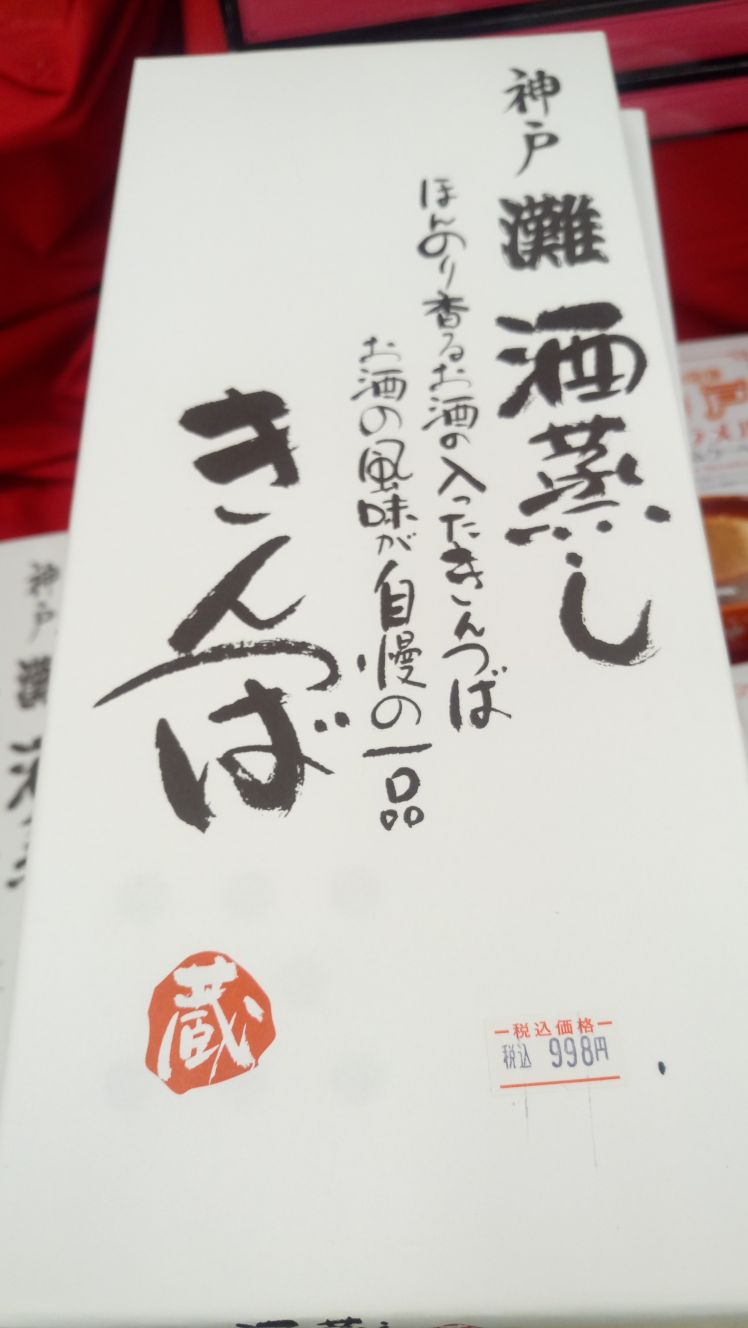 神戸 灘 酒蒸し
ほんのり香るお酒の入ったきんつば
お酒の風味が自慢の一品
きんつば
蔵
税込価格
税込 998円
神戸
灘
酒蒸し